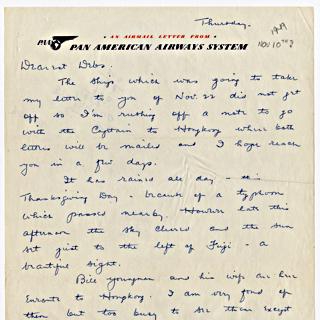 Thursday.
1949
NOV 10TH?
• AN AIRMAIL LETTER FROM •
PAA
PAN AMERICAN AIRWAYS SYSTEM
Dearest Debs.
The ship which was going to take
my letter to you of Nov. 22 did not get
off so I'm rushing off a note to go
with the Captain to Hongkong where both
letters will be mailed and I hope reach
you in a few days.
It has rained all day - it is
Thanksgiving Day - because of a typhoon
which passed nearby. However late this
afternoon the sky cleared and the sun
set just to the left of Fiji - a
beautiful sight.
Bill Youngman and his wife are here
Enroute to Hongkong. I am very fond of
them but too busy to see them Except